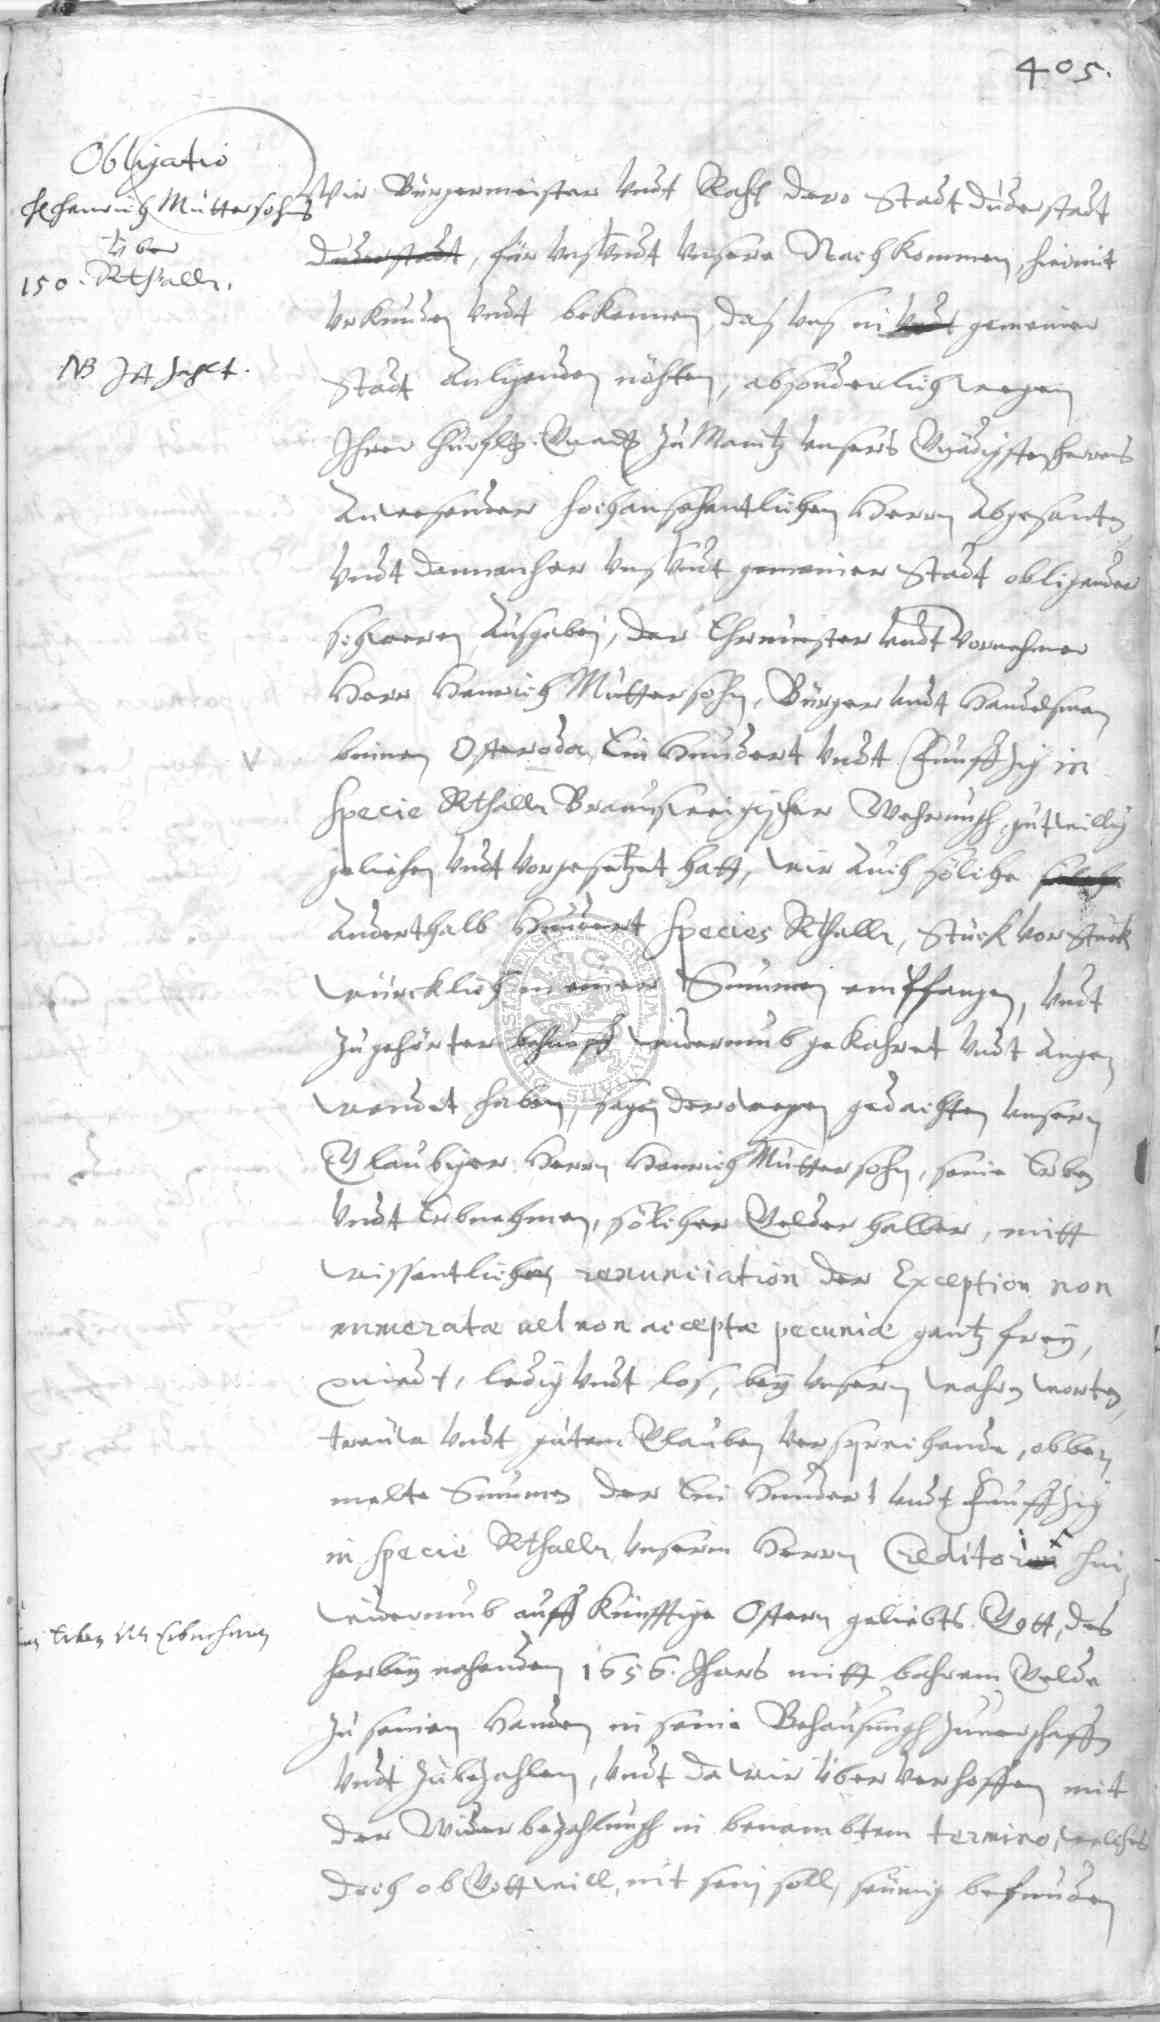 405.
Obligatio
H. Henrich Müttersohns
über
150. Rthaller.
NB JA Capit.
Wir Bürgermeister undt Raht dero Stadt Duderstadt
Duderstadt, für uns undt unsere Nachkommen, hiermit
Uhrkunden undt bekennen, das uns in undt gemeiner
Stadt Anligenden nöhten, absonderlich wegen
Ihrer Churfl. Gnad. zu Maintz unsers Gnädigsten Herrens
Anwesender hochansehentlichen Herrn Abgesanten
undt dannenher uns undt gemeiner Stadt obligender
schweren Ausgaben, der Ehrnvester undt Vornehmer
Herr Henrich Müttersohn, Bürger undt Handelsman
binnen Osteroda, Ein Hundert undt Funffzig in
specie Rthaller Braunschweigischer Wehrungh, gutwillig
geliehen undt vorgesetzet hatt, wir auch solche solche
Anderthalb Hundert Species Rthaller, Stück vor Stück
würcklich in einer Summen empfangen, undt
zugehörter behueff wiederumb gekahret undt angen
wendet haben, sagen derowegen gedachten unsern
Glaubiger Herrn Henrich Müttersohn, seine Erben
undt Erbnehmen, solcher Gelder halber, mitt
wissentlicher renunciation der Exception non
numeratæ vel non acceptæ pecuniæ gantz frey,
quiedt, ledig undt los, bey unsern wahren worten,
trewe undt gutem Glauben versprechende, obbe
melte Summen der Ein Hundert undt Funffzig
in specie Rthaller, unserm Herrn Creditori hin
wiederumb auff Künfftige Ostern geliebts Gott, des
herbey nahenden 1656. Jhars mitt bahrem Gelde
zu seinen Handen in seine Behausungh zuverschaffen
undt zubezahlen, undt da wir über verhoffen mit
der Wiederbezahlungh in benambtem termino, welches
doch ob Gott will, nit sein soll, seumig befunden
Erben und Erbnehmen